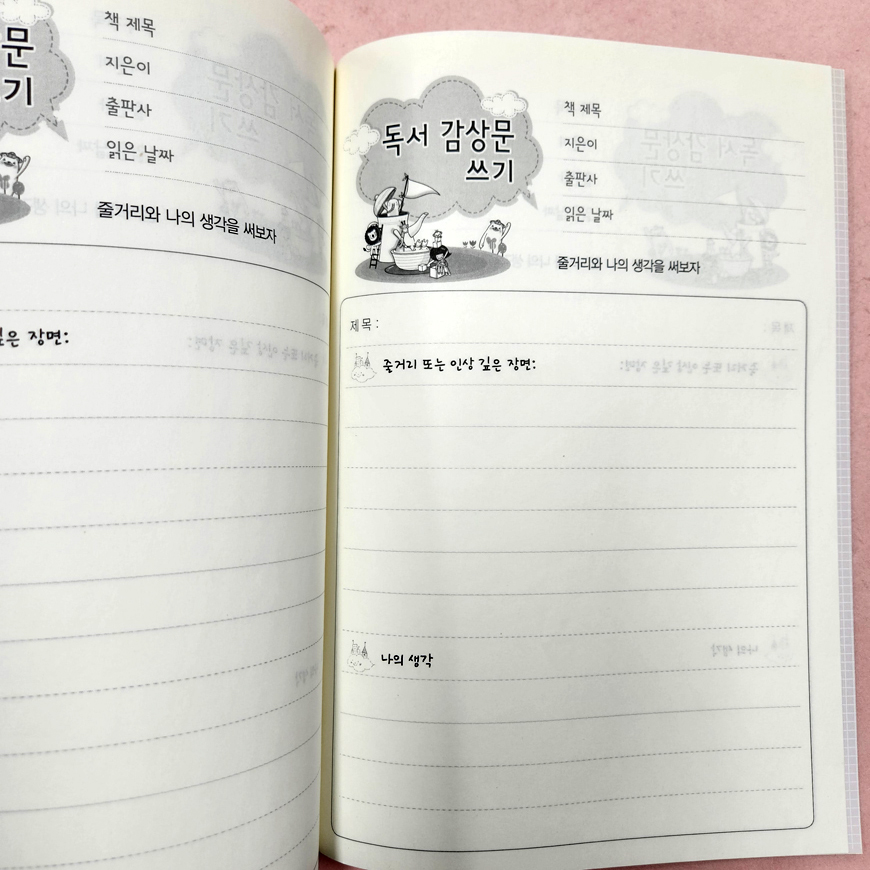 문
기
책 제목
지은이
출판사
읽은 날짜
줄거리와 나의 생각을 써보자
깊은 장면:
독서 감상문
쓰기
책 제목
지은이
출판사
읽은 날짜
줄거리와 나의 생각을 써보자
제목:
줄거리 또는 인상 깊은 장면:
나의 생각